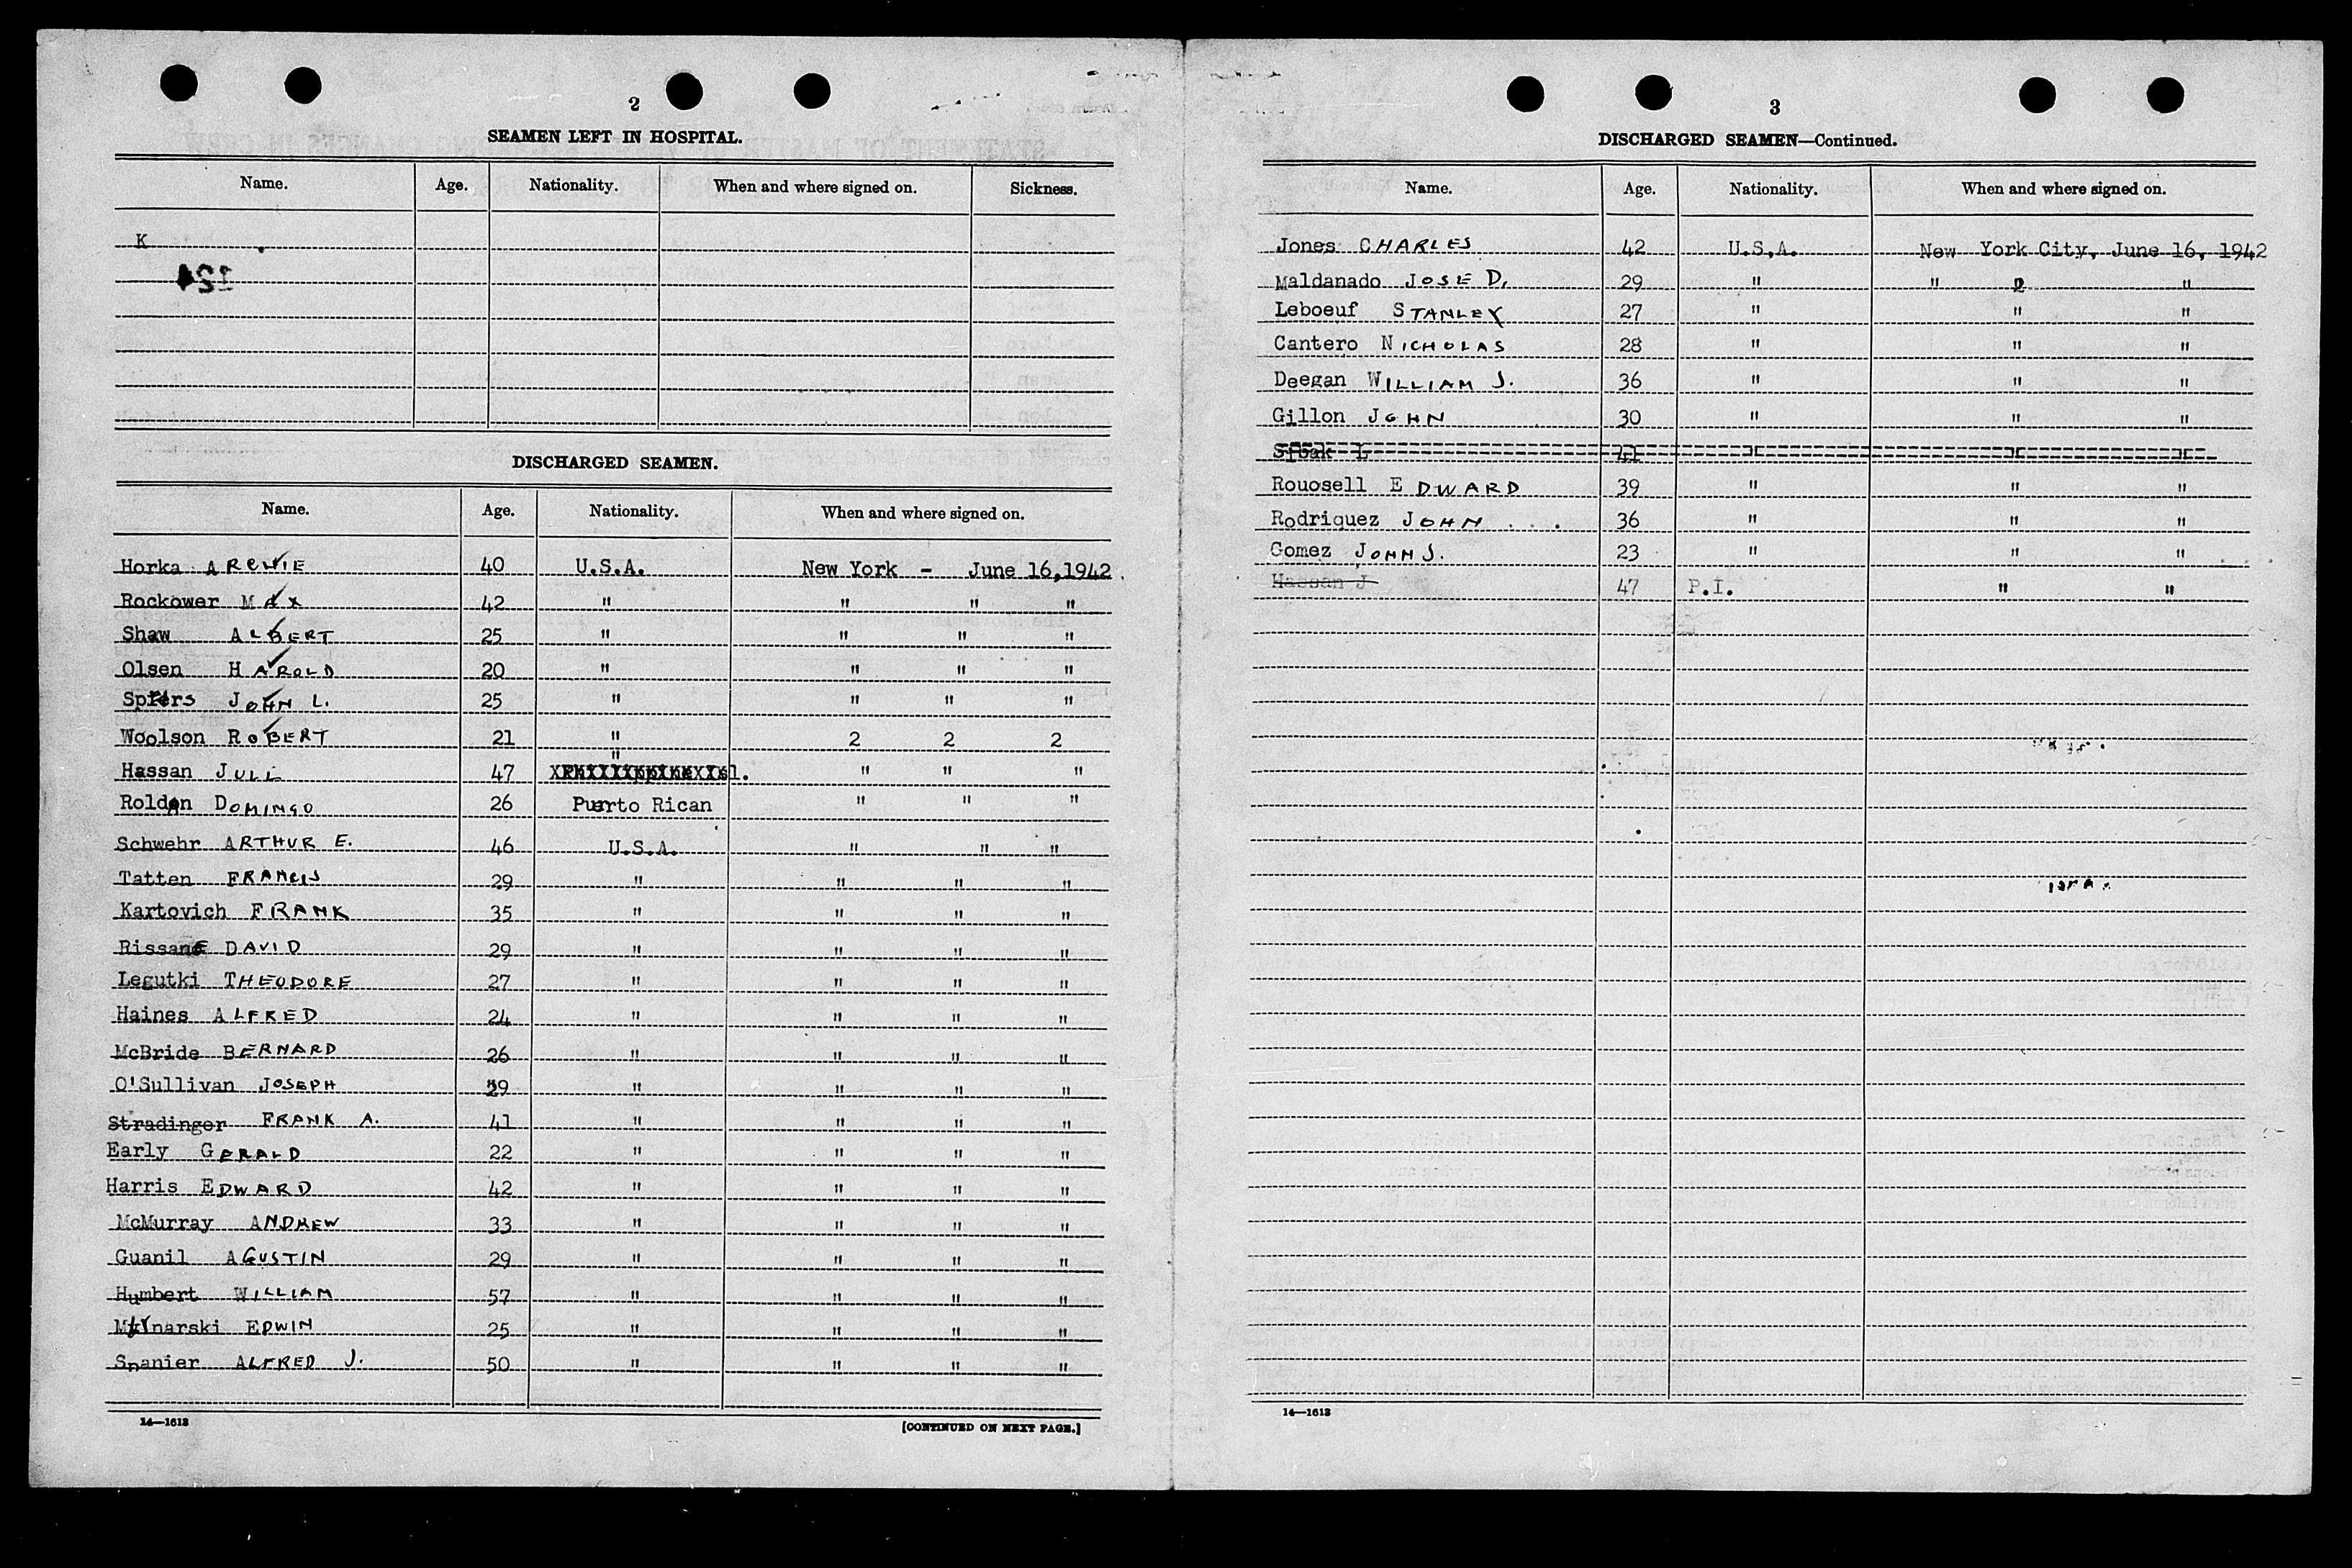 2
SEAMEN LEFT IN HOSPITAL.
Name. Age. Nationality. When and where signed on. Sickness.
K
DISCHARGED SEAMEN.
Name. Age. Nationality. When and where signed on.
Horka ARCHIE 40 U.S.A. New York - June 16,1942
Rockower MAX 42 " " " "
Shaw ALBERT 25 " " " "
Olsen HAROLD 20 " " " "
JOHN L. 25 " " " "
Woolson ROBERT 21 " 2 2 2
Hassan JULL 47 " " " "
Roldan DOMINGO 26 Puerto Rican " " "
Schwehr ARTHUR E. 46 U.S.A. " " "
Tatten FRANCIS 29 " " " "
Kartovich FRANK 35 " " " "
DAVID 29 " " " "
Legutki THEODORE 27 " " " "
Haines ALFRED 24 " " " "
McBride BERNARD 26 " " " "
O'Sullivan JOSEPH " " " "
Stradinger FRANK A. 41 " " " "
Early GERALD 22 " " " "
Harris EDWARD 42 " " " "
McMurray ANDREW 33 " " " "
Guanil AGUSTIN 29 " " " "
Humbert WILLIAM 57 " " " "
EDWIN 25 " " " "
Spanier ALFRED J. 50 " " " "
14—1613 [CONTINUED ON NEXT PAGE.]
3
DISCHARGED SEAMEN—Continued.
Name. Age. Nationality. When and where signed on.
Jones CHARLES 42 U.S.A. New York City, June 16, 1942
Maldanado JOSE D. 29 " " "
Leboeuf STANLEY 27 " " "
Cantero NICHOLAS 28 " " "
Deegan WILLIAM J. 36 " " "
Gillon JOHN 30 " " "
Rouosell EDWARD 39 " " "
Rodriquez JOHN 36 " " "
Gomez JOHN J. 23 " " "
Hassan J 47 P.I. " "
14—1613